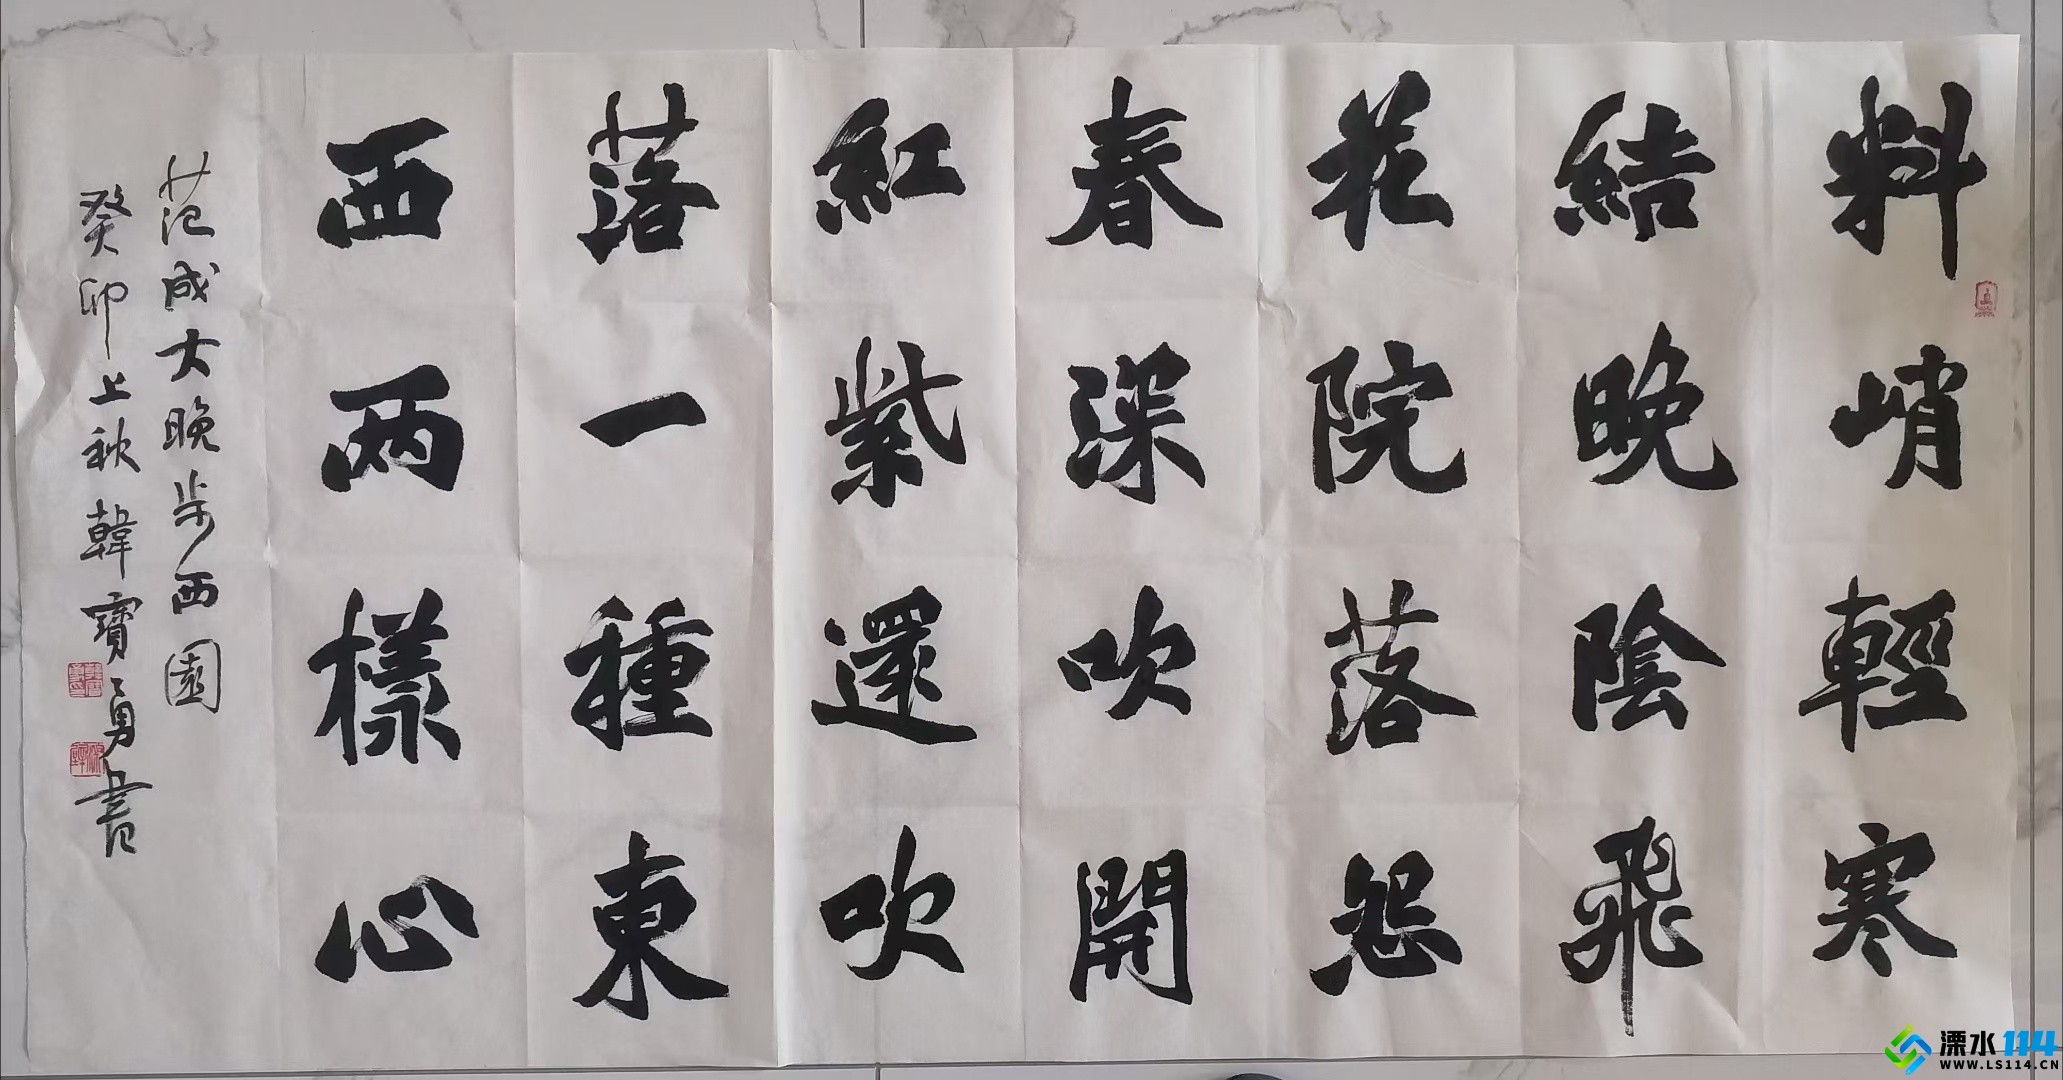 料峭輕寒
結晚陰飛
花院落怨
春深吹開
紅紫還吹
落一種東
西两樣心
范成大晚步西園
癸卯上秋韓寶勇書
溧水114
WWW.LS114.CN